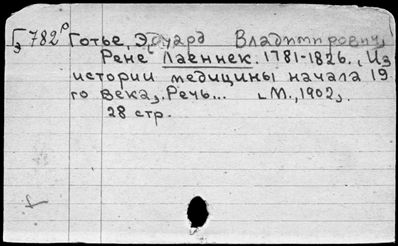 Г 782⁰ Готье, Эдуард Владимирович,
э
Рене Лаеннек. 1781-1826. Из
истории медицины начала 19
го века. Речь... М., 1902.
28 стр.